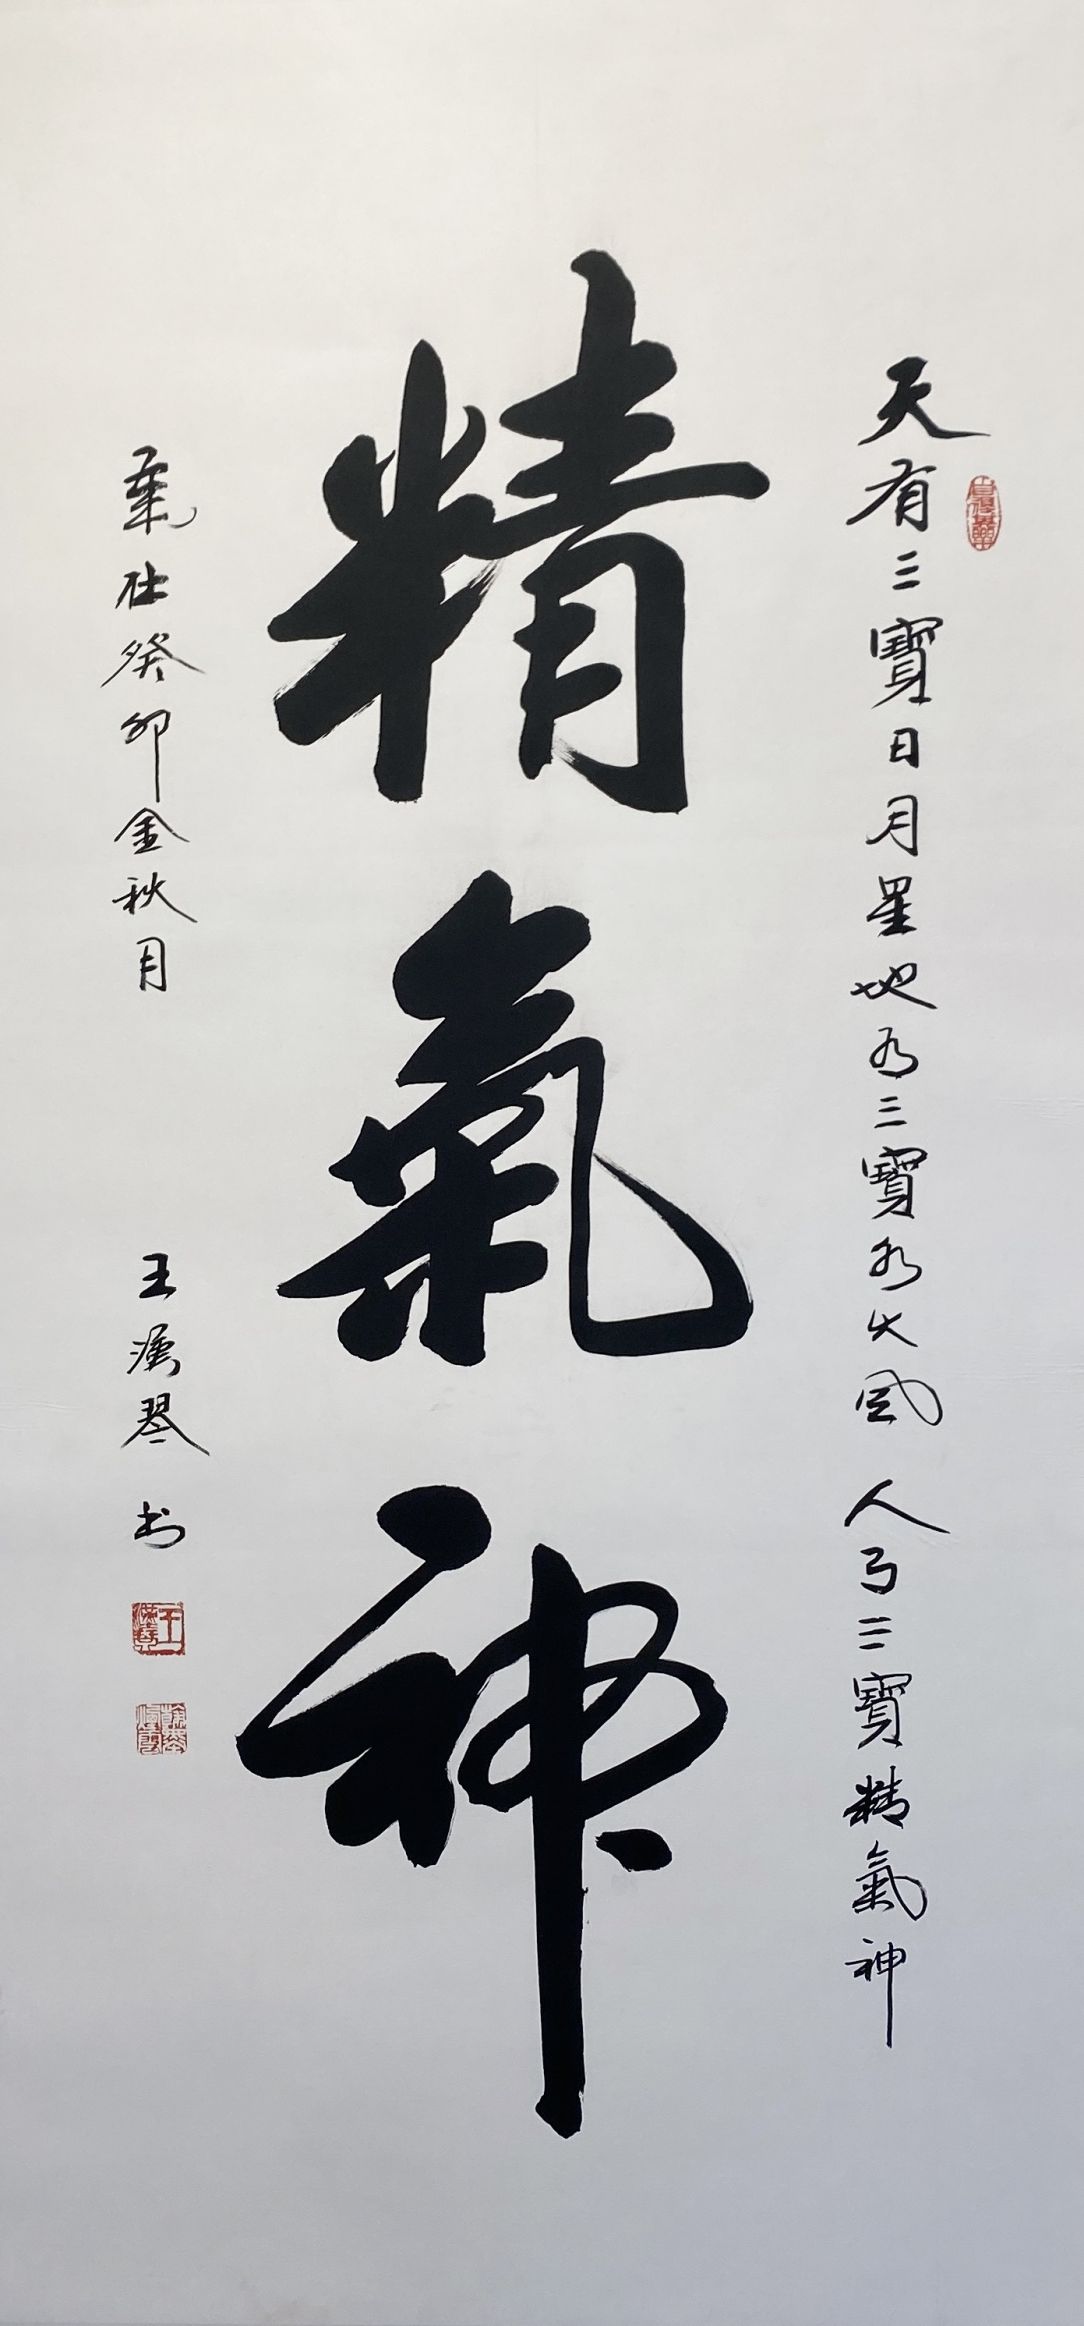 天有三寶日月星地有三寶水火風人有三寶精氣神
精氣神
歲在癸卯金秋月 王漢琴书